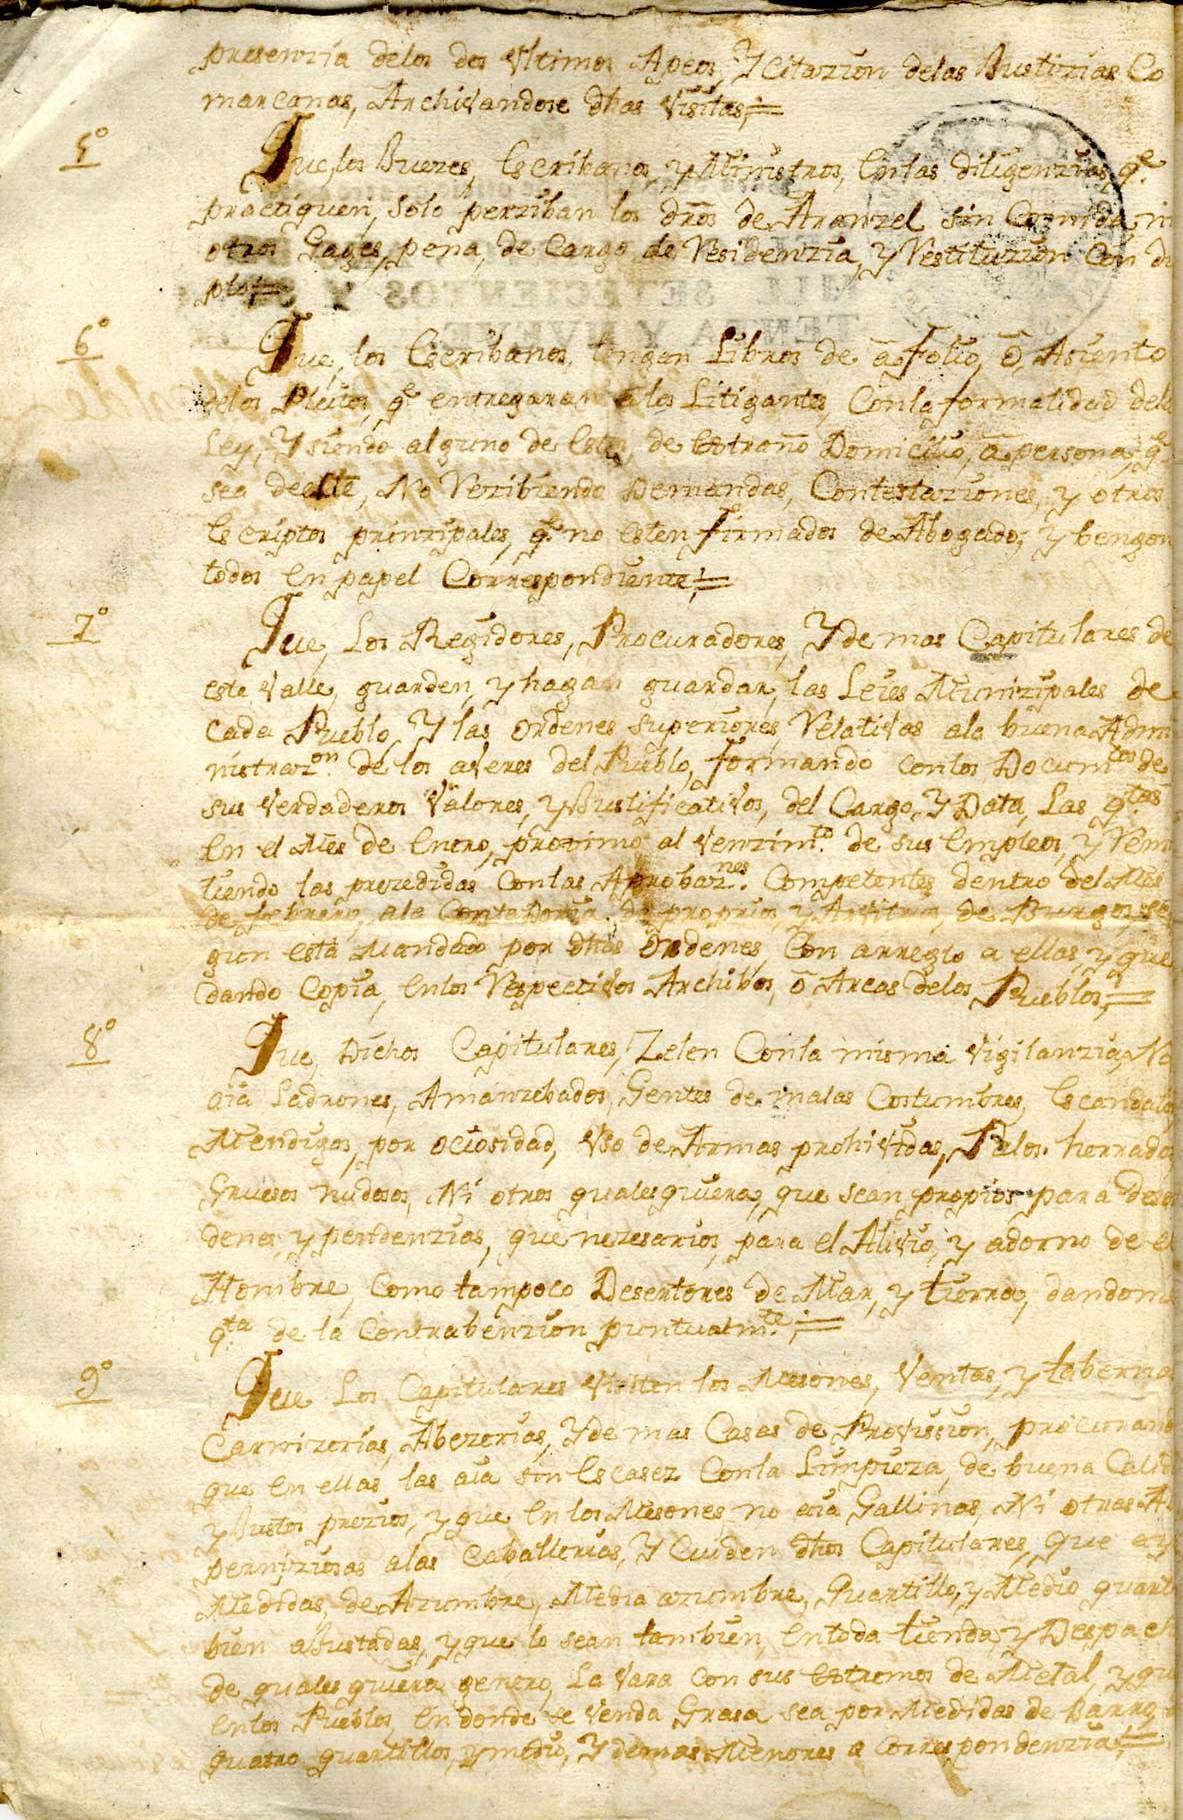 presenzia delos dos Vltimos Apeos, Y Citazion delas Justizias Co
marcanas, Archivandose dhas Visitas,=
5º
Que, los Juezes, Escribanos, y Ministros, En las diligenzias, q.e
practiquen, solo perziban los dros de Aranzel sin Comida ni
otros Gages, pena, de Cargo de Residenzia, y Restituzion Con du
plo,=
6º
Que, los Escribanos, tengan Libros de â folio, ô, Asiento
delos Pleitos, q.e entregaran a los Litigantes, Conla formalidad dela
Ley, Y siendo alguno de Estos, de Estraño Domicilio, â persona, q.e
sea de este, No Rezibiendo Demandas, Contestaziones, y otros
Escriptos prinzipales, q.e no esten firmados de Abogado, y bengan
todos En papel Correspondiente,=
7º
Que, Los Regidores, Procuradores, Y de mas Capitulares de
este Valle, guarden, y hagan guardar, las Leies Munizipales de
Cada Pueblo, Y las ordenes superiores Relativas ala buena Admi
nistraz.on de los averes del Pueblo, formando con los Docum.tos de
sus Verdaderos Valores, y Justificativos, del Cargo, Y Data, Las q.tas
En el Mes de Enero, proximo al Venzim.to de sus Empleos, y Remi
tiendo las prezedidas Con las Aprobaz.nes Competentes dentro del Mes
de Febrero, ala Contadoria de proprios, y Arvitrios, de Burgos, se
gun esta Mandado por dhas Ordenes, Con arreglo a ellas, y que
dando Copia, En los Respectivos Archibos, ô Arcas delos Pueblos,=
8º
Que, Dichos Capitulares, Zelen Conla misma Vigilanzia, No
aia Ladrones, Amanzebados, Gentes de malas Costumbres, Escandalos,
Mendigos, por ociosidad, Vso de Armas prohividas, Palos herrados
Gruesos nudosos, Ni otros qualesquiera, que sean propios para desor
denes, y pendenzias, que nezesarios, para el Alivio, y adorno de el
Hombre, Como tampoco Desertores de Mar, y tierra, dandome
q.ta de la Contrabenzion puntualm.te,=
9º
Que Los Capitulares Visiten los Mesones, Ventas, y tabernas
Carnizerias, Abazerias, Y de mas Casas de Provission, procurando
que en ellas, las aia sin Escasez Conla Limpieza, de buena Calid
y Justos prezios, y que En los Mesones no aia Gallinas, Ni otras A
perniziosas alas Caballerias, Y Cuiden dhos Capitulares, que ay
Medidas, de Azumbre, Media azumbre, Quartillo, y Medio quart
bien aJustadas, y que lo sean tambien, En toda tienda, y Despach
de qualesquiera genero, La Vara con sus Estremos de Metal, y que
En los Pueblos, En donde se Venda Grasa sea por Medidas de Barro,
quatro quartillos, y medio, Y demas Menores a Correspondenzia,=